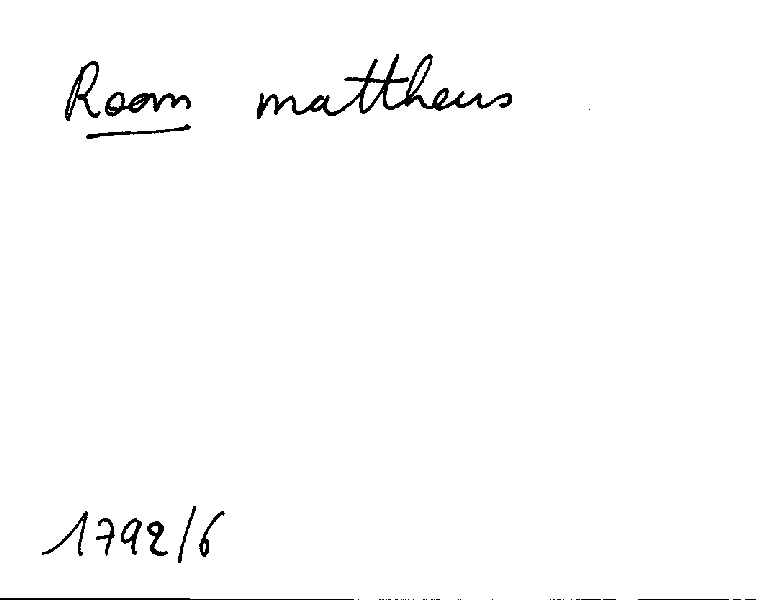 Room mattheus
1792/6